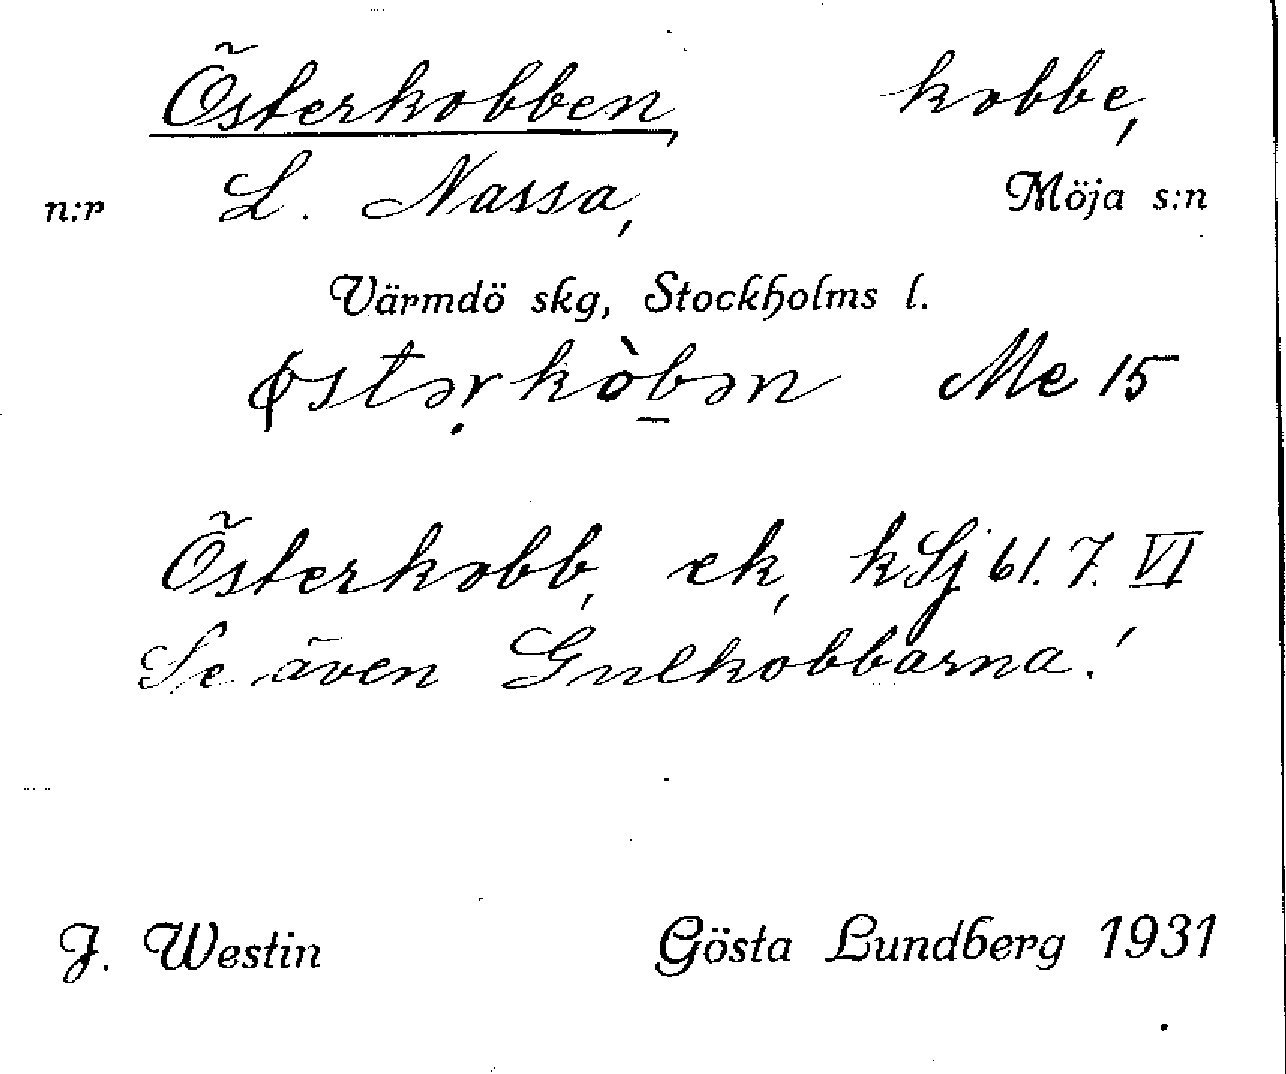 Österkobben, kobbe,
n:r L. Nassa, Möja s:n
Värmdö skg, Stockholms l.
østəṛkòb̠ən Me 15
Österkobb, ek, kSj 61. 7. VI
Se även Gulkobbarna!
J. Westin Gösta Lundberg 1931